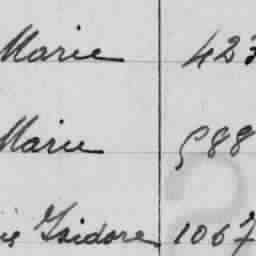 Marie 423
Marie 588
Isidore 1067